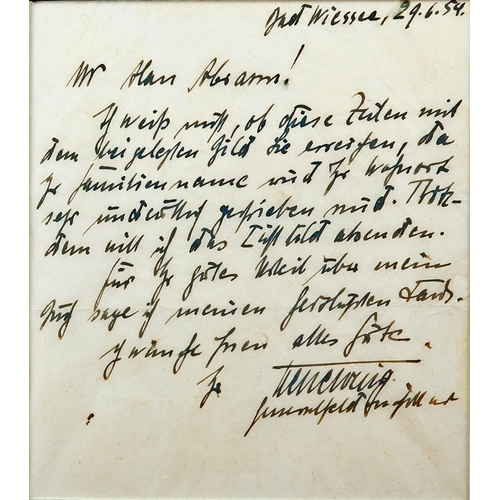 Bad Wiessee, 29.6.54.
Mr Alan Abrams!
Ich weiß nicht, ob diese Zeilen mit
dem beigelegten Bild Sie erreichen, da
Ihr Familienname und Ihr Wohnort
sehr undeutlich geschrieben sind. Trotz-
dem will ich das Lichtbild absenden.
Für Ihr gutes Urteil über mein
Buch sage ich meinen herzlichsten Dank.
Ich wünsche Ihnen alles Gute.
Ihr
Generalfeldmarschall